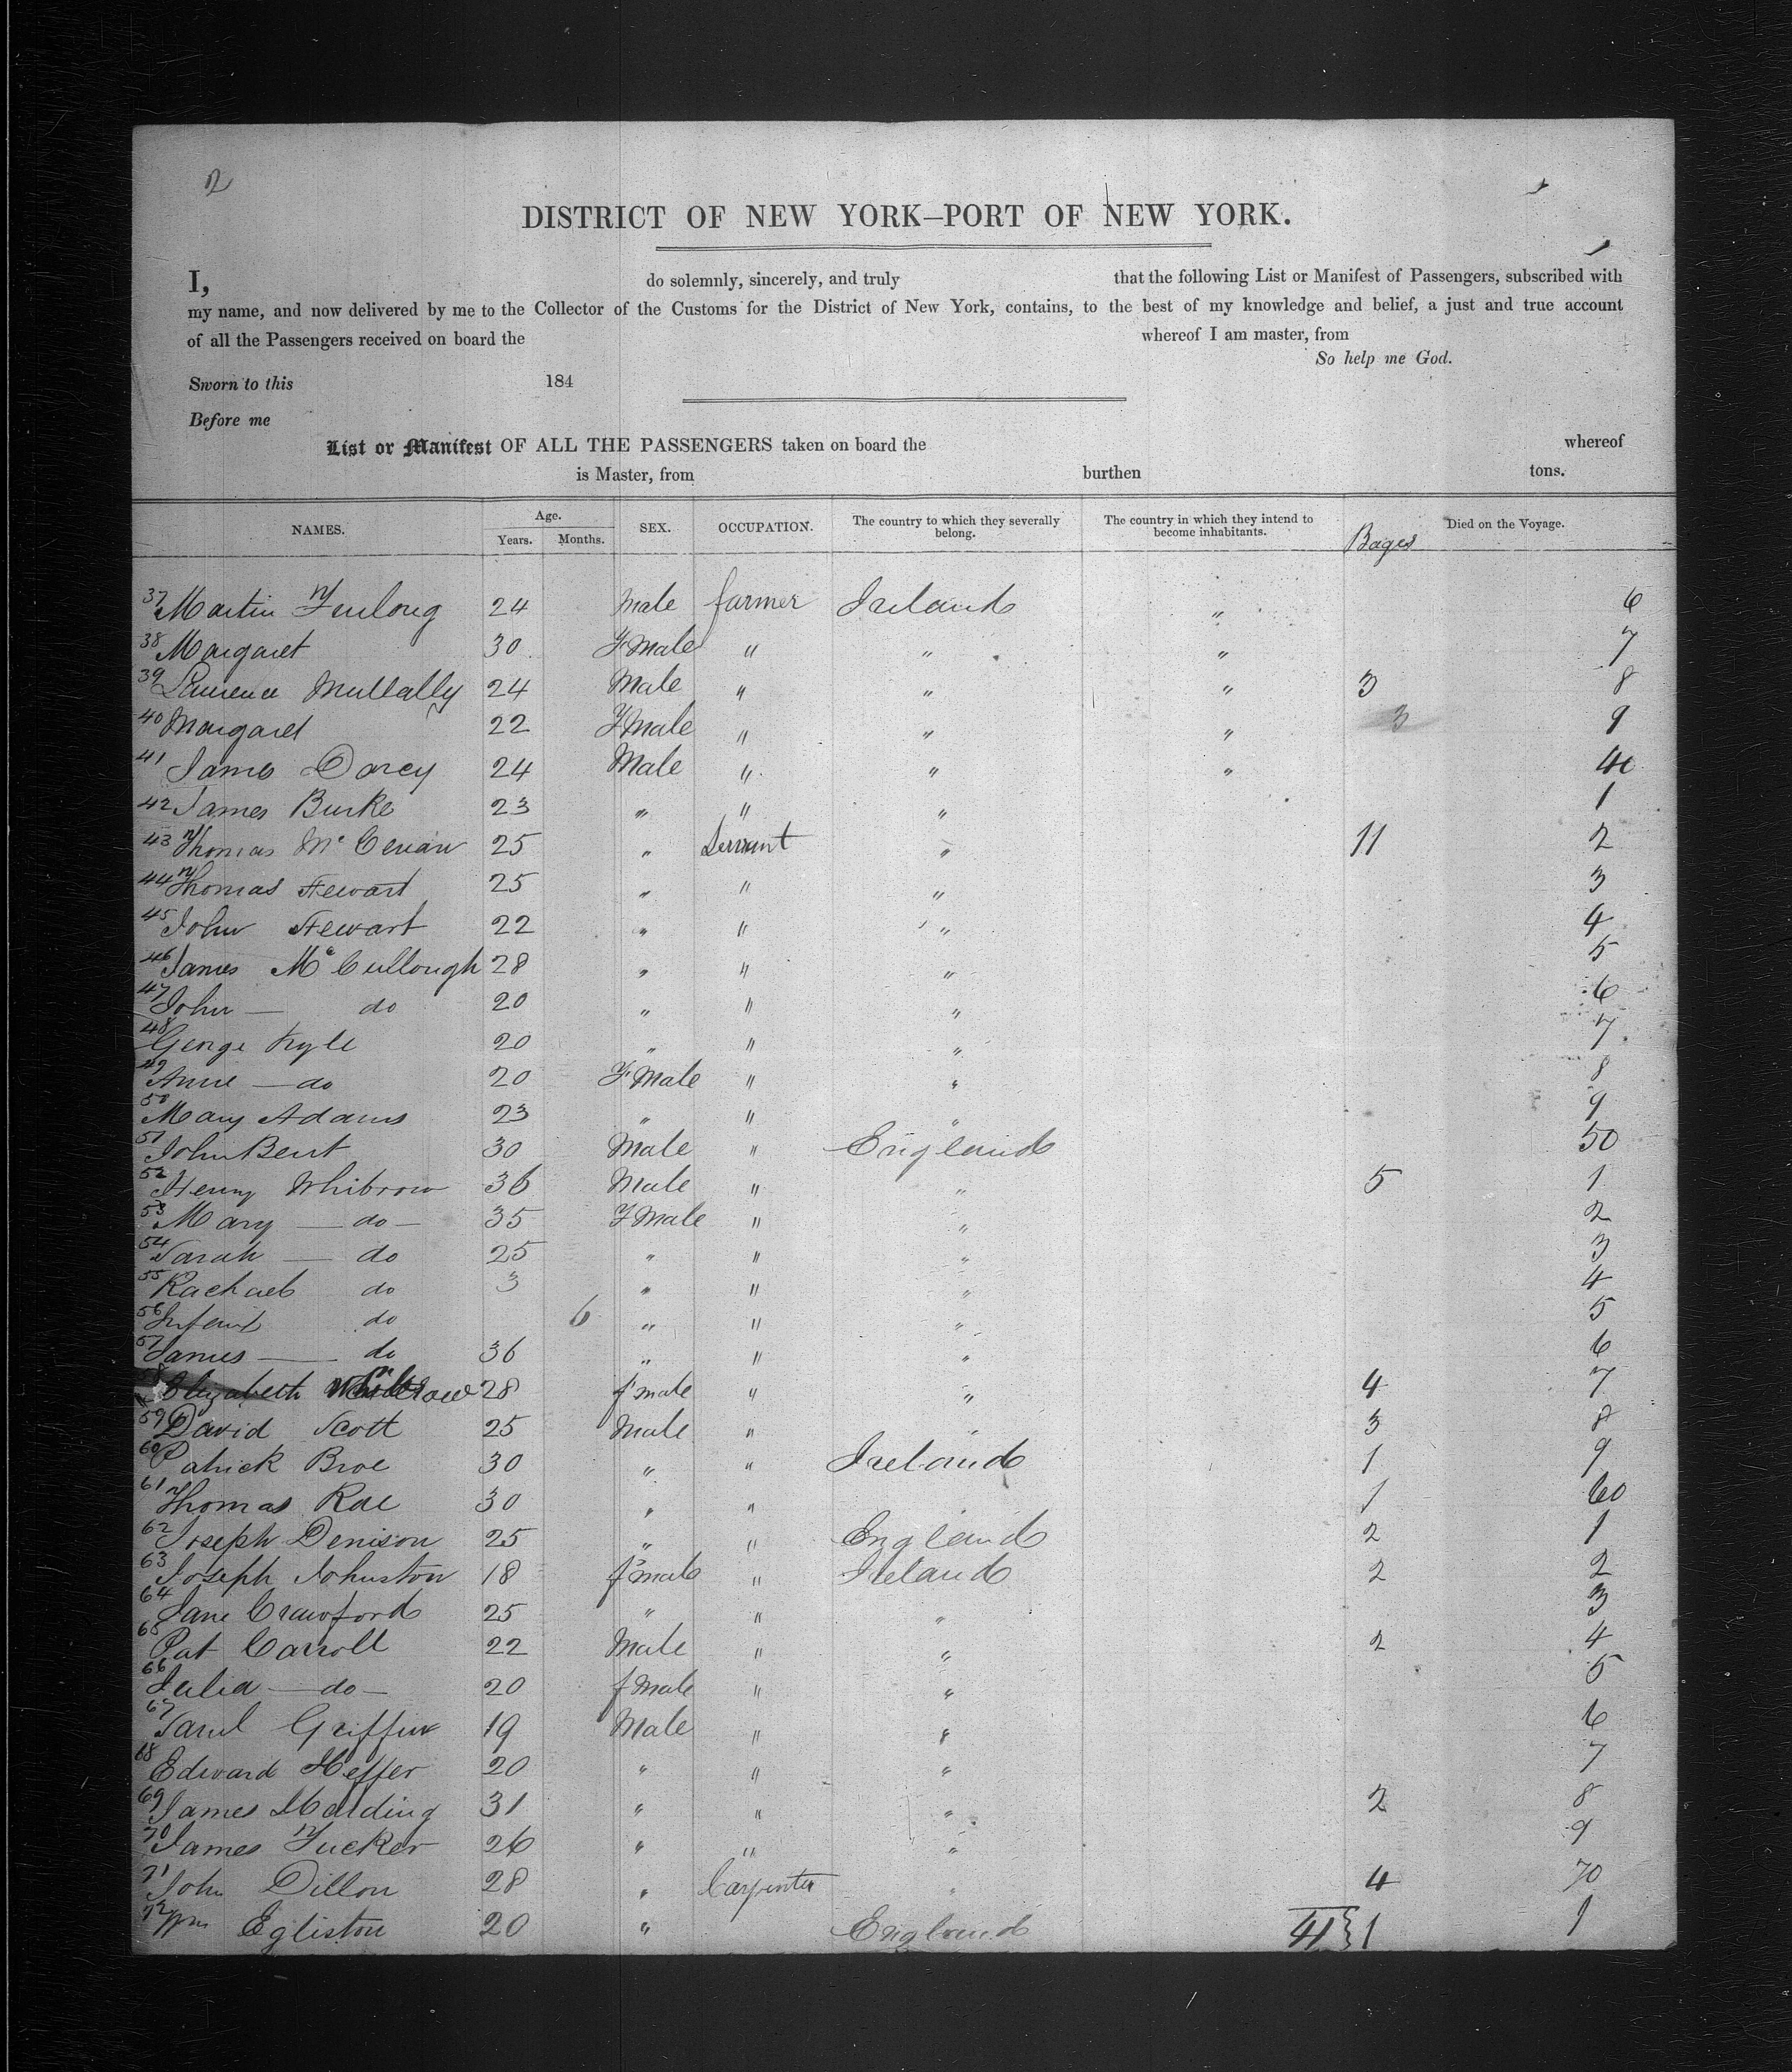 2
DISTRICT OF NEW YORK–PORT OF NEW YORK.
I, do solemnly, sincerely, and truly that the following List or Manifest of Passengers, subscribed with
my name, and now delivered by me to the Collector of the Customs for the District of New York, contains, to the best of my knowledge and belief, a just and true account
of all the Passengers received on board the whereof I am master, from
So help me God.
Sworn to this 184
Before me
List or Manifest OF ALL THE PASSENGERS taken on board the whereof
is Master, from burthen tons.
NAMES. Age. Years. Months. SEX. OCCUPATION. The country to which they severally belong. The country in which they intend to become inhabitants. Bages Died on the Voyage.
37 Martin Furlong 24 Male farmer Ireland " 6
38 Margaret 30 FMale " " " 7
39 Laurence Mullally 24 Male " " " 3 8
40 Margaret 22 FMale " " " 3 9
41 James Darcy 24 Male " " " 40
42 James Burke 23 " " " 1
43 Thomas Mc 25 " Servant " 11 2
44 Thomas Stewart 25 " " " 3
45 John Stewart 22 " " " 4
46 James McCullough 28 " " " 5
47 John — do 20 " " " 6
48 George Kyle 20 " " " 7
49 Anne — do 20 FMale " " 8
50 Mary Adams 23 " " " 9
51 John Bent 30 Male " England 50
52 Henry Whibrow 36 Male " " 5 1
53 Mary — do — 35 FMale " " 2
54 Sarah — do 25 " " " 3
55 Rachael do 3 " " " 4
56 Infant do 6 " " " 5
57 James — do 36 " " " 6
58 Elizabeth 28 fmale " " 4 7
59 David Scott 25 Male " 3 8
60 Patrick Broe 30 " " Ireland 1 9
61 Thomas Roe 30 " " 1 60
62 Joseph Denison 25 " " England 2 1
63 Joseph Johnston 18 fmale " Ireland 2 2
64 Jane Crawford 25 " " " 3
65 Pat Carroll 22 Male " " 2 4
66 Julia — do — 20 fMale " " 5
67 Saml Griffin 19 Male " " 6
68 Edward Heffer 20 " " " 7
69 James Harding 31 " " " 2 8
70 James Tucker 26 " " " 9
71 John Dillon 28 " Carpenter " 4 70
72 Wm Egliston 20 " England 41 } 1 1